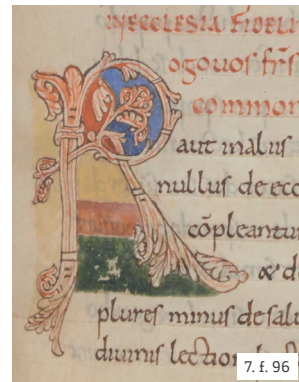 IN ECCLESIA FIDELI
Rogo uos fr̄s
common
aut in aliis
nullus de ecc
cōpleantur
& d
plures minus de salu
diuinis lection
7. f. 96